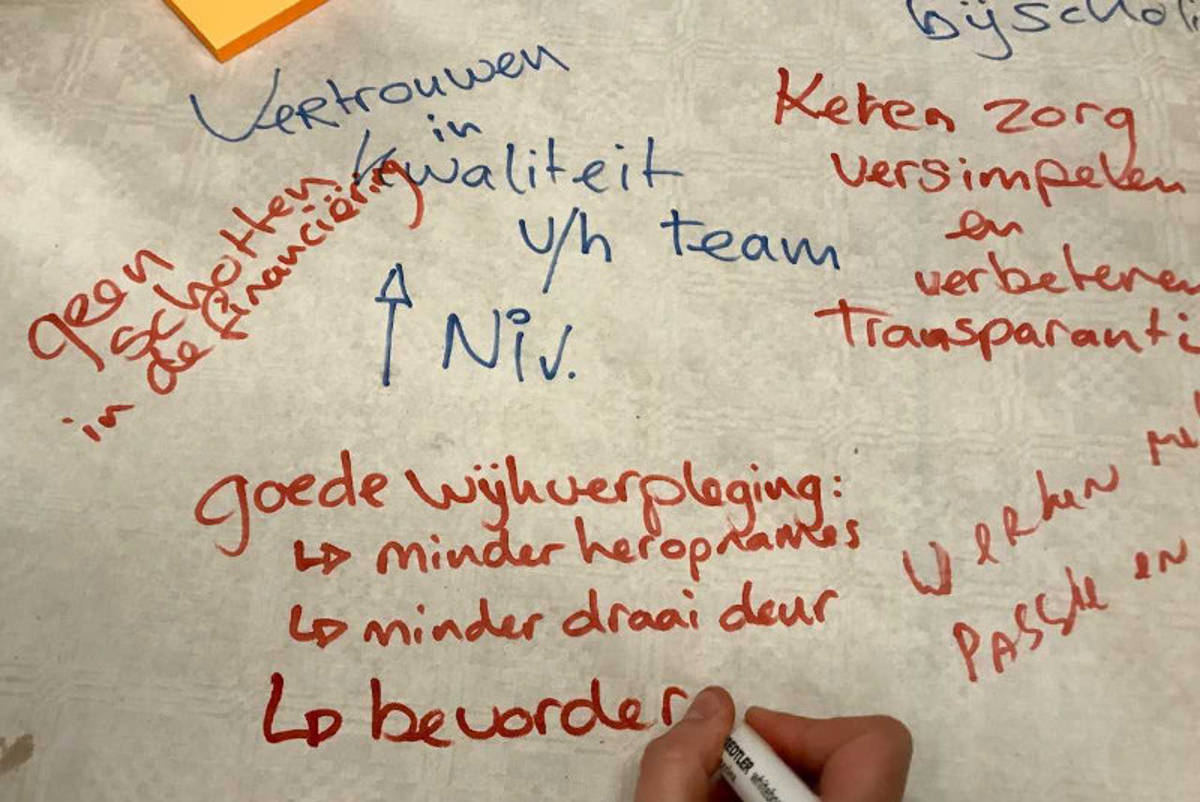 bijschol
Vertrouwen
in
kwaliteit
v/h team
↑ Niv.
geen
schotten
in de financiëring
Keten zorg
versimpelen
en
verbeteren
Transparanti
goede wijkverpleging:
↳ minder heropnames
↳ minder draai deur
↳ bevorder
Werken
Passie en
STAEDTLER